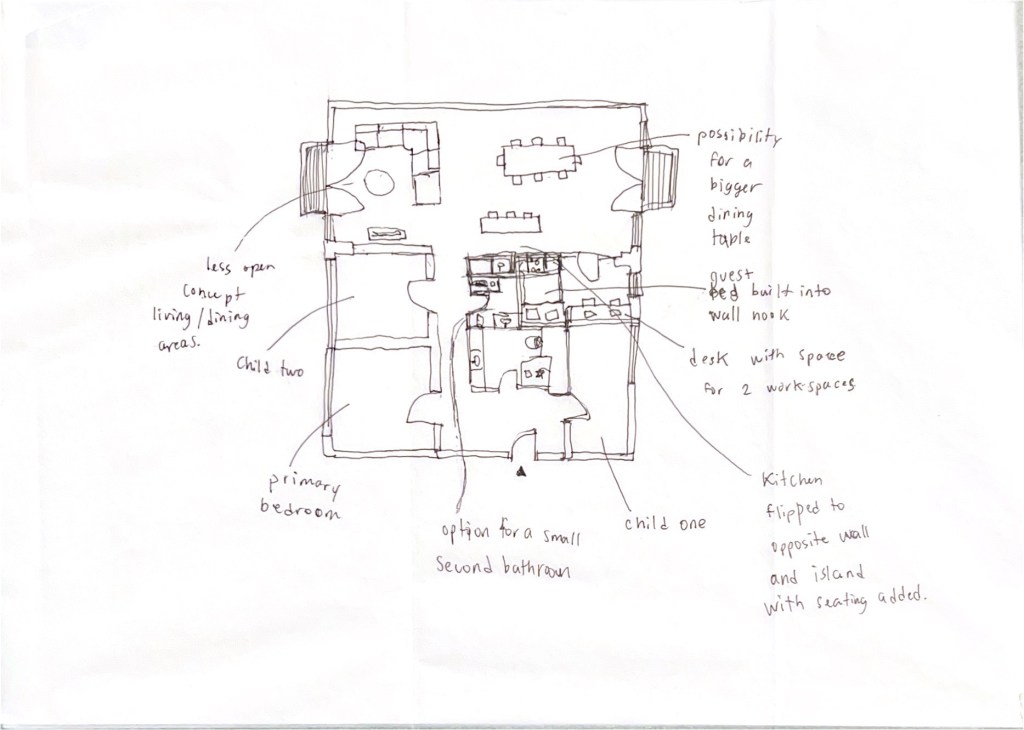 possibility
for a
bigger
dining
table
less open
concept
living/dining
areas.
guest
bed built into
wall nook
Child two
desk with space
for 2 workspaces
primary
bedroom
option for a small
second bathroom
child one
Kitchen
flipped to
opposite wall
and island
with seating added.